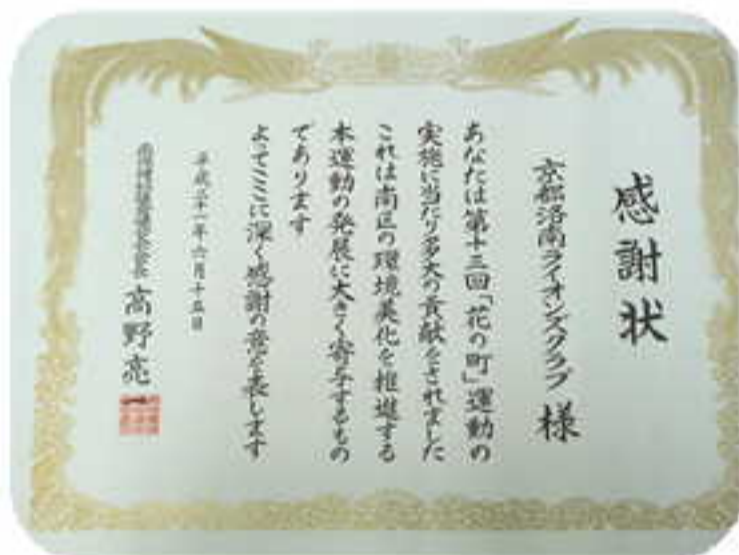 感謝状
京都洛南ライオンズクラブ 様
あなたは第十三回「花の町」運動の
実施に当たり多大の貢献をされました
これは南区の環境美化を推進する
本運動の発展に大きく寄与するもの
であります
よってここに深く感謝の意を表します
平成二十一年六月十五日
高野亮